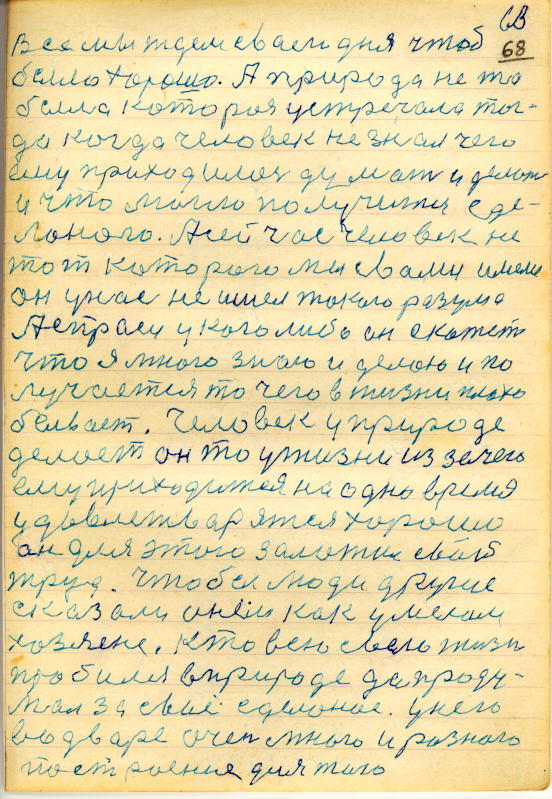 68
68
Все мы ждем сваего дня чтоб
было хорошо. А природа не та
была которая устречала тог-
да когда человек не знал чего
ему приходился думат и делат
и что могло получится сде-
лоного. А сейчас человек не
тот которого мы свами имели
он унас не имел такого разума
А спраси у кого либо он скажет
что я много знаю и делаю и по
лучается то чего в жизни плохо
бывает. Человек у природе
делает он то у жизни из за чего
ему приходится на одно время
удовлетварятся хорошо
он для этого заложил свой
труд. Чтобы люди другие
сказали онём как умелом
хозяене. Кто всю свою жизн
пробился в природе да проду-
мал за своё сделоное. У него
во дваре очен много и разного
построение для того